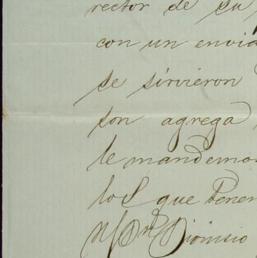 rector de su
con un enviá
se sirvieron
son agrega
le mandemo
los que tenen
Dionisio